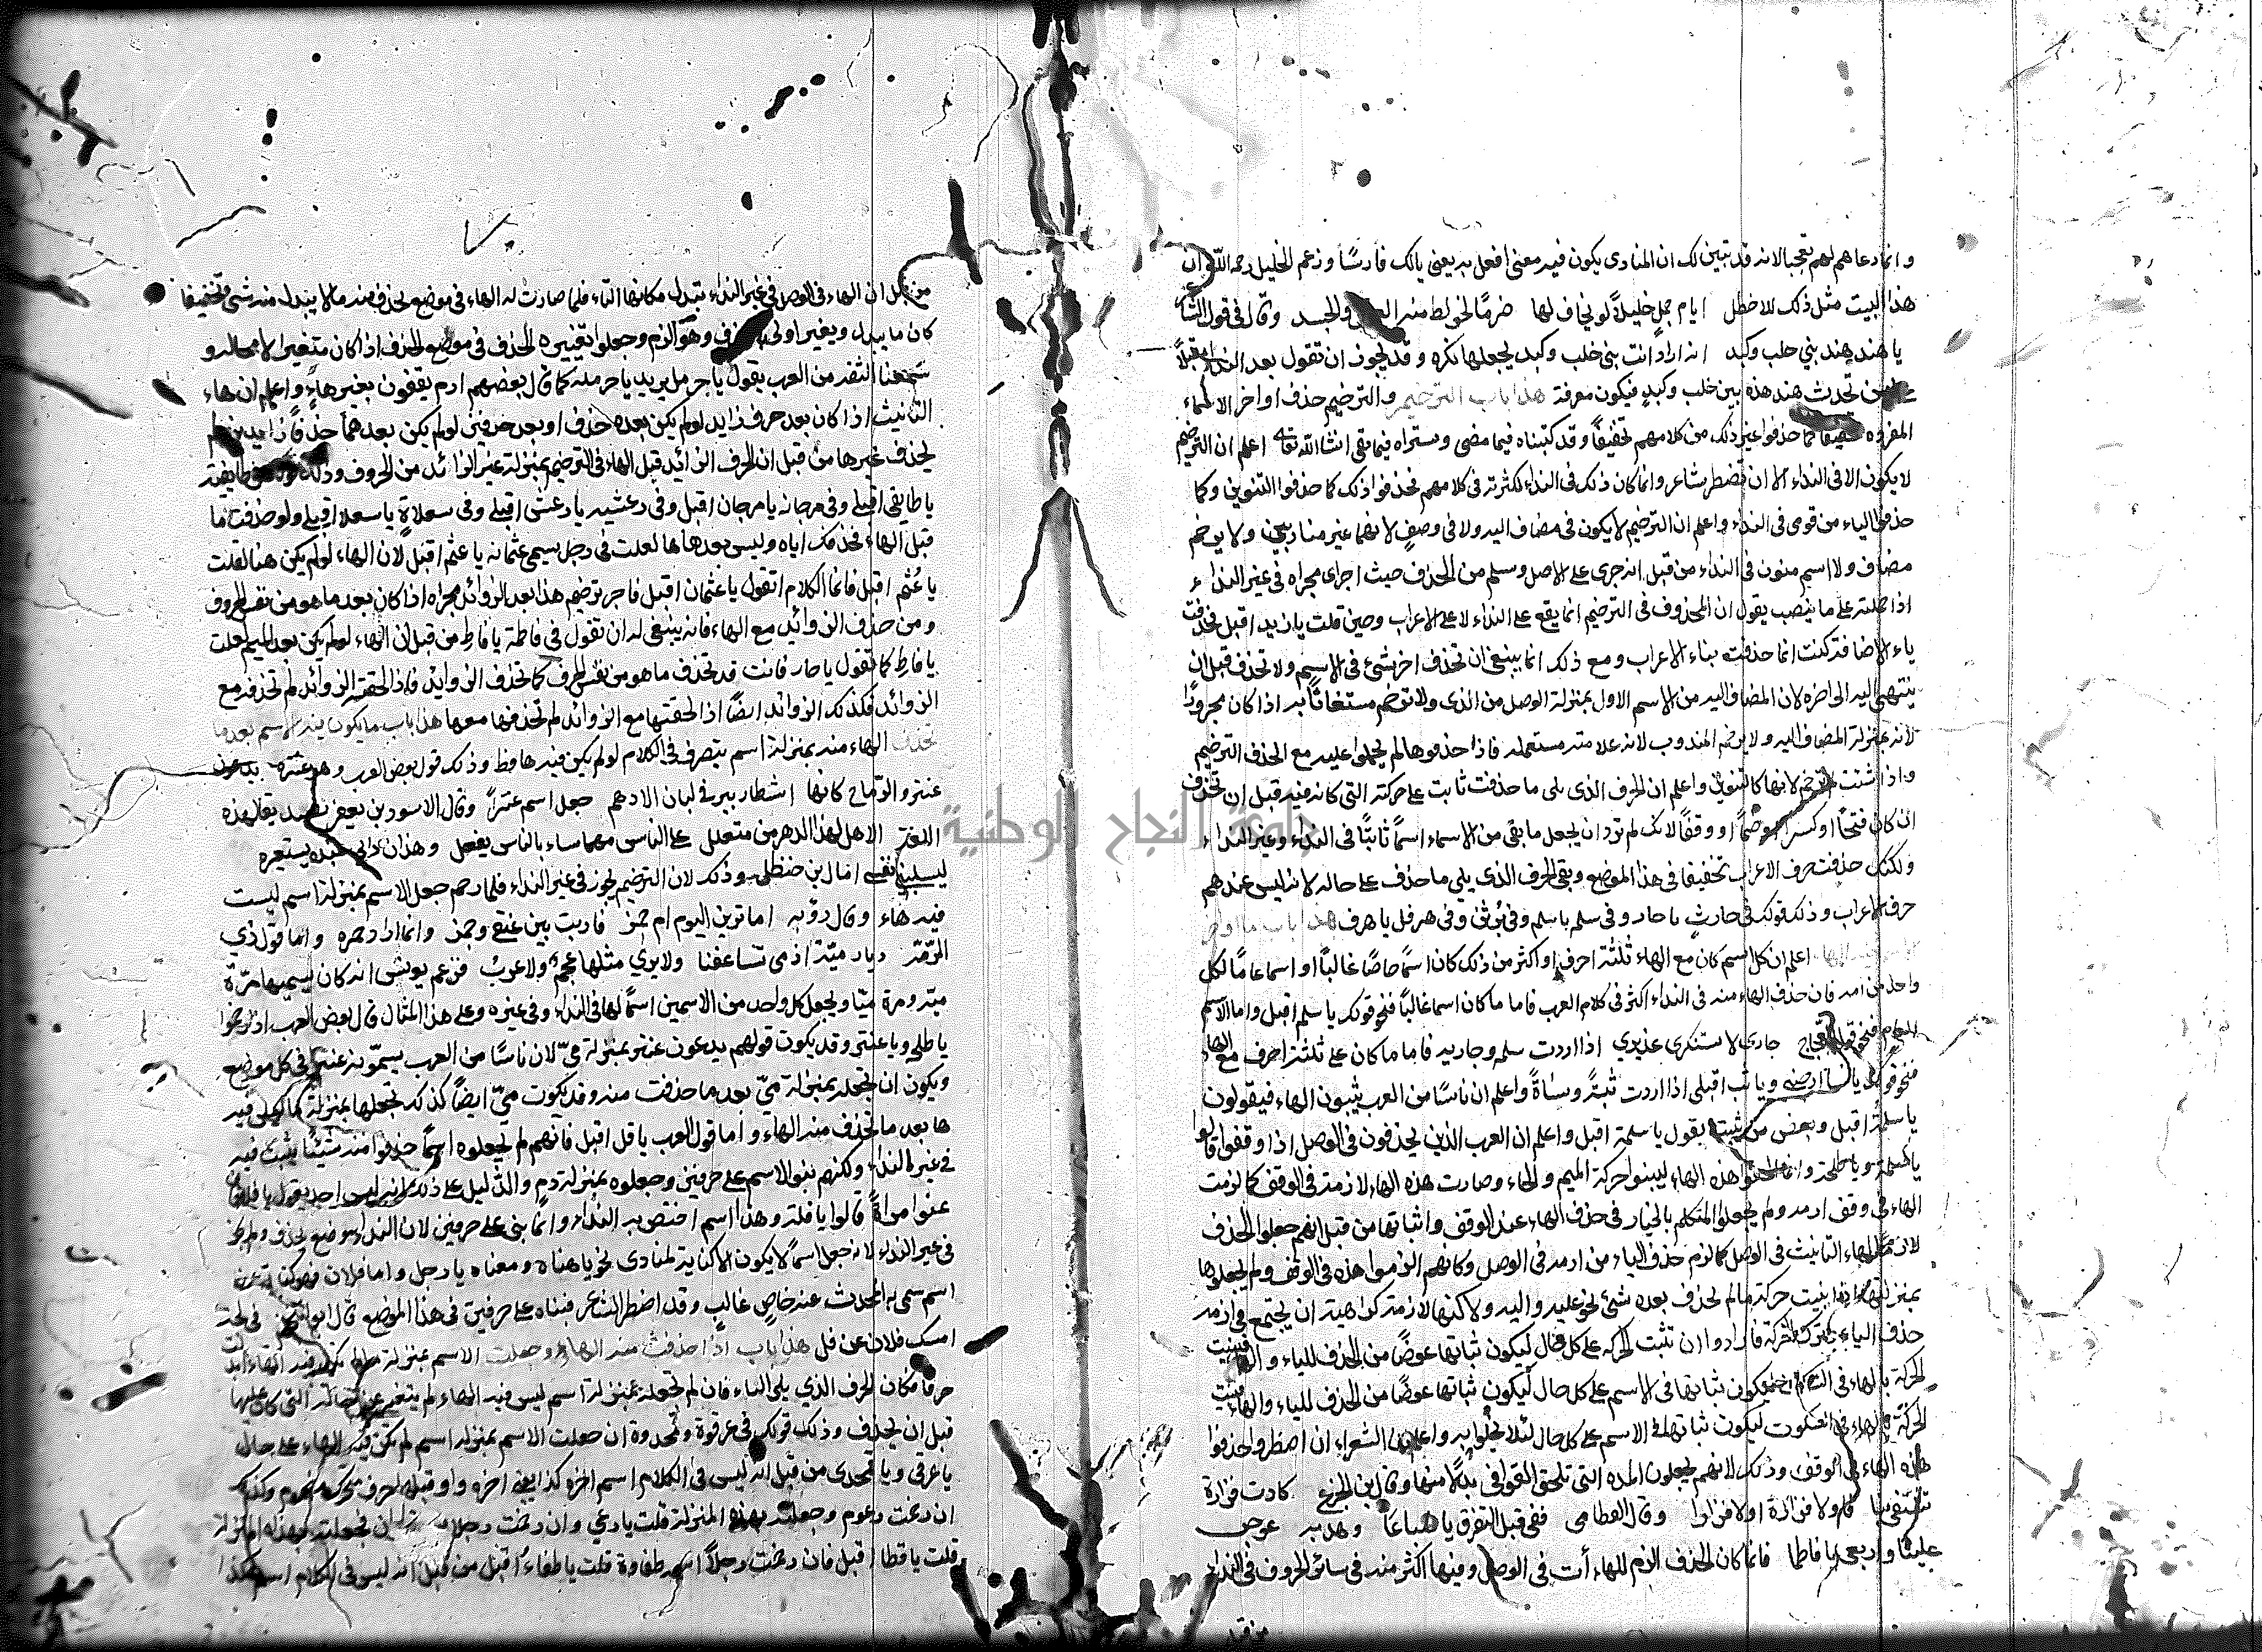 وانما دعاهم لهم تعجبا لانه قد تبين لك ان المنادى يكون فيه معنى افعل به يعني يالك فارسًا وزعم الخليل رحمه الله ان
هذا البيت مثل ذلك للاخطل ايام جمل خليلًا لو يخاف لها صرمًا لخولط منه والجسد وقال في قول الشاعر
يا هند هند بني خلب وكبد انه اراد انت بني خلب وكبد يجعلها نكرة وقد يجوز ان تقول بعد النداء مقبلًا
على من تحدث هند هذه بين خلب وكبد فيكون معرفة هذا باب الترخيم والترخيم حذف اواخر الاسماء
المفردة كما حذفوا غير ذلك من كلامهم تخفيفًا وقد كتبناه فيما مضى وستراه فيما بقى انشا الله اعلم ان الترخيم
لا يكون الا في النداء الا ان يضطر شاعر وانما كان ذلك في النداء لكثرته في كلامهم فحذفوا ذلك كما حذفوا التنوين وكما
حذفوا الياء من قومي في النداء واعلم ان الترخيم لا يكون في مضاف اليه ولا في وصف لانهما غير مناديين ولا يرخم
مضاف ولا اسم منون في النداء من قبل انه جرى على الاصل وسلم من الحذف حيث اجرى مجراه في غير النداء
اذا حملته على ما ينصب يقول ان المحذوف في الترخيم انما يقع على النداء لا على الاعراب وحين قلت يا زيد اقبل فحذفت
ياء الاضافة كنت انما حذفت بناء الاعراب ومع ذلك انما ينبغي ان تحذف اخر شئ في الاسم ولا تحذف قبل ان
ينتهى اليه الى اخره لان المضاف اليه من الاسم الاول بمنزلة الوصل من الذى ولا ترخم مستغاثًا به اذا كان مجرورًا
لانه بمنزلة المضاف اليه ولا يرخم المندوب لانه علامته مستعمله فاذا حذفوها لم يحملوا عليه مع الحذف الترخيم
واذا لانها كالتنوين واعلم ان الحرف الذى يلى ما حذفت ثابت على حركته التى كانه فيه قبل ان تحذف
ان كان فتحًا او كسرا او ضمًا او وقفًا لانك لم ترد ان يجعل ما بقى من الاسماء اسمًا ثابتًا في النداء وغير النداء
ولكنك حذفت حرف الاعراب تخفيفا في هذا الموضع وبقى الحرف الذى يلى ما حذف على حاله لانه ليس عندهم
حرف الاعراب وذلك قولك في حارث يا حار وفي سلم يا سلم وفي برثن وفي هرقل يا هرق هذا باب ما اواخر
اعلم ان كل اسم كان مع الهاء ثلثة احرف او اكثر من ذلك كان اسمًا خاصًا غالبًا او اسما عامًا لكل
واحد من امه فان حذف الهاء منه في النداء اكثر في كلام العرب فاما ما كان اسما غالبًا فنحو قولك يا سلم اقبل واما الاسم
العام فنحو قول العجاج جارى لا تستنكرى عذيرى اذا اردت سلمه وجاريه فاما ما كان على ثلثة احرف مع الهاء
فنحو قولك يا شا ارجنى ويا ثب اقبلى اذا اردت ثبةً وشاةً واعلم ان ناسًا من العرب يثبتون الهاء فيقولون
يا سلمة اقبل وبعض من يثبت يقول يا سلمة اقبل واعلم ان العرب الذين يحذفون في الوصل اذا وقفوا قالوا
يا سلمه ويا طلحه وانما الحقوا هذه الهاء ليبينوا حركة الميم والحاء وصارت هذه الهاء لازمة في الوقف كما لزمت
الهاء في وقف ارمه ولم يجعلوا المتكلم بالخيار في حذف الهاء عند الوقف واثباتها من قبل انهم جعلوا الحذف
لازمًا لهاء التانيث في الوصل كما لزم حذف الياء من ارمه في الوصل وكانهم الزموا هذه في الوقف ولم يجعلوها
بمنزلة اذا بينت حركة مالم يحذف بعده شئ نحو عليه واليه ولاكنها لازمة كراهية ان يجتمع في ارمه
حذف الياء وترك الحركة فارادوا ان تثبت الحركة على كل حال ليكون ثباتها عوضًا من الحذف للياء والهاء فبينت
الحركة بالهاء في ليكون ثباتها في الاسم على كل حال ليكون ثباتها عوضًا من الحذف للياء والهاء فبينت
الحركة بالهاء في السكوت ليكون ثباتها في الاسم على كل حال لئلا يخلوا به واعلم ان الشعراء ان اضطروا حذفوا
هذه الهاء في الوقف وذلك لانهم يجعلون المدة التي تلحق القوافى بدلًا منها وقال ابن الخرع كادت فزارة
تشقى بنا فاولا فزارة اولا فزارا وقال القطامى قفى قبل التفرق يا ضباعا وهدبه عوجى
علينا واربعى يا فاطما فانما كان الحذف الزم للهاءات في الوصل وفيها اكثر منه في سائر الحروف في النداء
من قبل
من قبل ان الهاء في الوصل في غير النداء تبدل مكانها التاء فلما صارت له الهاء في موضع يحذف منه ما لا يبدل منه شئ تخفيفا
كان ما يبدل ويغير اولى وهو الزم وجعلوا تغييره الحذف في موضع الحذف اذا كان متغير لا محاله و
سمعنا الثقه من العرب يقول يا حرمل يريد يا حرمله كما قال بعضهم ارم يقفون بغير هاءٍ واعلم ان هاء
التانيث اذا كان بعد حرف زايد لو لم يكن بعده حذف او بعد حرفين لو لم يكن بعدهما حذفا زايدين لم
يحذف غيرها من قبل ان الحرف الزائد قبل الهاء في الترخيم بمنزلة غير الزائد من الحروف وذلك قولك في طايفيه
يا طايفى اقبلى وفي مرجانه يا مرجان اقبل وفي رعشنه يا رعشن اقبلى وفي سعلاةٍ يا سعلا اقبلى ولو حذفت ما
قبل الهاء كحذفك اياه وليس بعدها ها لقلت في رجل يسمى عثمانه يا عثم اقبل لان الهاء لو لم يكن هنا لقلت
يا عُثم اقبل فانما الكلام ان تقول يا عثمان اقبل فاجر ترخيم هذا بعد الزوائد مجراه اذا كان بعد ما هو من نفس الحروف
ومن حذف الزوائد مع الهاء فانه ينبغى له ان تقول في فاطمة يا فاطِ من قبل ان الهاء لو لم يكن بعد الميم لقلت
يا فاطِ كما تقول يا حار فانت قد تحذف ما هو من نفس الحرف كما تحذف الزوايد فاذا لحقته الزوائد لم تحذفه مع
الزوائد فكذلك الزوائد ايضًا اذا لحقتها مع الزوائد لم تحذفها معها هذا باب ما يكون فيه الاسم بعد ما
تحذف الهاء منه بمنزلة اسم يتصرف في الكلام لو لم يكن فيه ها قط وذلك قول بعض العرب وهو عنترة يدعون
عنتر والرماح كانها اشطار بير في لبان الادهم جعل اسم عنترًا وقال الاسود بن يعفر تصديقا لهذه
اللغة الاهل لهذا الدهر من متعلل على الناس مهما ساء بالناس يفعل وهذا ردائى عنده يستعيره
ليسلبنى نفسى امال بن حنظلِ وذلك لان الترخيم يجوز في غير النداء فلما رخم جعل الاسم بمنزلة اسم ليست
فيه هاء وقال رؤبه اما ترينى اليوم ام حمز قاربت بين عنقى وجمز وانما اراد حمزه وانما قول ذي
الرّمّه ديار ميّة اذ مى تساعفنا ولا يرى مثلها عجمٌ ولا عربُ فزعم يونس انه كان يسميها مرّة
ميّه ومرة ميّا ويجعل كل واحد من الاسمين اسمًا لها في النداء وفي غيره وعلى هذا المثال قال بعض العرب اذا رخموا
يا طلح ويا عنتر وقد يكون قولهم يدعون عنتر بمنزلة مىّ لان ناسًا من العرب يسمّونه عنترا في كل موضع
ويكون ان تجعله بمنزلة مىّ بعد ما حذفت منه وقد يكون مىّ ايضًا كذلك تجعلها بمنزلة ما ليس فيه
ها بعد ما تحذف منه الهاء واما قول العرب يا فل اقبل فانهم لم يجعلوه اسمًا حذفوا منه شيئًا يثبت فيه
في غير النداء ولكنهم بنوا الاسم على حرفين وجعلوه بمنزلة دم والدليل على ذلك انه ليس احد يقول يا فل فان
عنوا امراة قالوا يا فلة وهذا اسم اختص به النداء وانما بنى على حرفين لان النداء موضع تحذف ولم يجز
في غير النداء لانه جعل اسمًا لا يكون الا كناية لمنادى نحو يا هناه ومعناه يا رجل واما فلان فهو كناية عن
اسم سمى به المحدث عنه خاصٍ غالب وقد اضطر الشاعر فبناه على حرفين في هذا الموضع قال ابو النجم في لجة
امسك فلان عن فل هذا باب اذا حذفت منه الهاء وجعلت الاسم بمنزلة ما لم تكن فيه الهاء ابدلت
حرفًا مكان الحرف الذي يلى الهاء فان لم تجعله بمنزلة اسم ليس فيه الهاء لم يتغير عن حاله التى كان عليها
قبل ان يحذف وذلك قولك في عرقوة وقمحدوة ان جعلت الاسم بمنزلة اسم لم تكن فيه الهاء على حال
يا عرقى ويا قمحدى من قبل انه ليس في الكلام اسم اخره كذا يعنى اخره واو قبلها حرف متحرك مضموم وكذلك
ان رخمت رعوم وجعلته بهذه المنزلة قلت يا رعي وان رخمت رجلا فجعلته بهذه المنزلة
قلت يا قطا اقبل فان رخمت رجلًا اسمه طفاوة قلت يا طفاءُ اقبل من قبل انه ليس في الكلام اسم هكذا